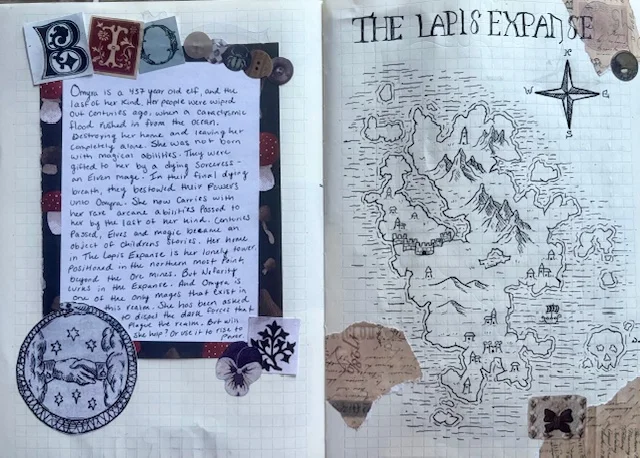 BIO
Omyra is a 437 year old elf, and the
last of her kind. Her people were wiped
out centuries ago, when a cataclysmic
flood rushed in from the ocean.
Destroying her home and leaving her
completely alone. She was not born
with magical abilities. They were
gifted to her by a dying Sorceress -
an Elven mage. In their final dying
breath, they bestowed their powers
unto Omyra. She now carries with
her rare arcane abilities passed to
her by the last of her kind. Centuries
passed, Elves and magic became an
object of childrens stories. Her home
in The Lapis Expanse is her lonely tower,
Positioned in the northern most point,
beyond the Ore mines. But
lurks in the Expanse. And Omyra is
one of the only mages that exist in
this realm. She has been asked
to dispel the dark forces that
plague the realm. But will
she help? Or use it to rise to
Power.
THE LAPIS EXPANSE
N
W
E
S